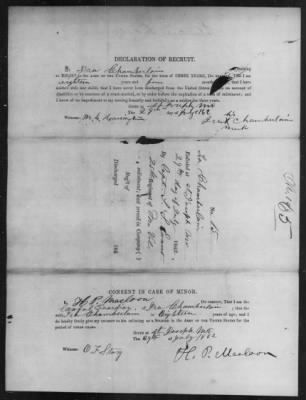 DECLARATION OF RECRUIT.
I, Ira Chamberlain desiring
to ENLIST in the ARMY OF THE UNITED STATES, for the term of THREE YEARS, Do declare, That I am
eighteen years and four months of age; that I have
neither wife nor child; that I have never been discharged from the United States service on account of
disability or by sentence of a court-martial, or by order before the expiration of a term of enlistment; and
I know of no impediment to my serving honestly and faithfully as a soldier for three years.
Given at St Joseph Mo
The 29th day of July 1862
Witness:
his
Ira X Chamberlain
mark
No. 185
Ira Chamberlain
Enlisted at St Joseph Mo
29th day of July 1862
By Capt
Regiment of Mo Vols
enlistment; last served in Company ( )
Reg't of
Discharged 186
CONSENT IN CASE OF MINOR.
I, H. P. Macloon Do certify, That I am the
of Ira Chamberlain
that the said Ira Chamberlain is Eighteen years of age; and I
do hereby freely give my consent to his enlisting as a SOLDIER in the ARMY OF THE UNITED STATES for the
period of THREE YEARS.
Given at St Joseph Mo
The 29th day of July 1862
Witness: O F Story
H. P. Macloon